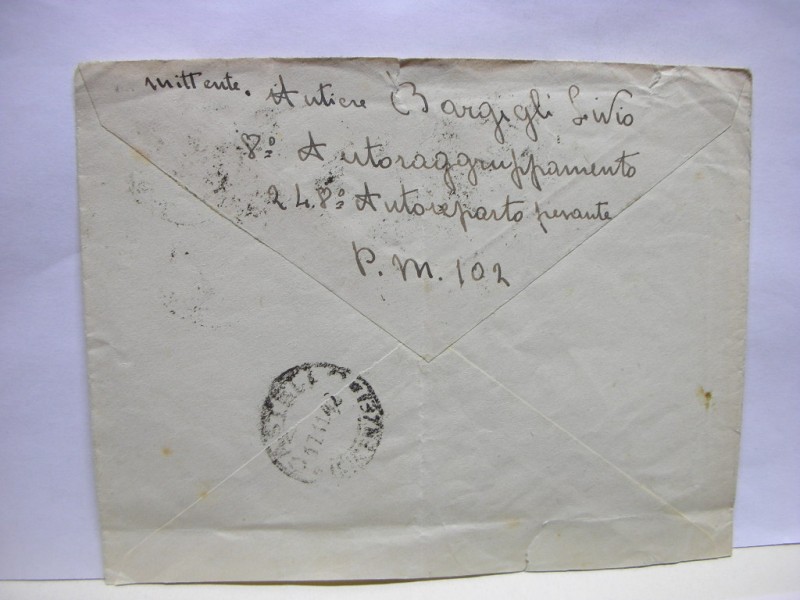 mittente. Autiere Bargigli Livio
8º Autoraggruppamento
248º Autoreparto pesante
P. M. 102
17.11.42